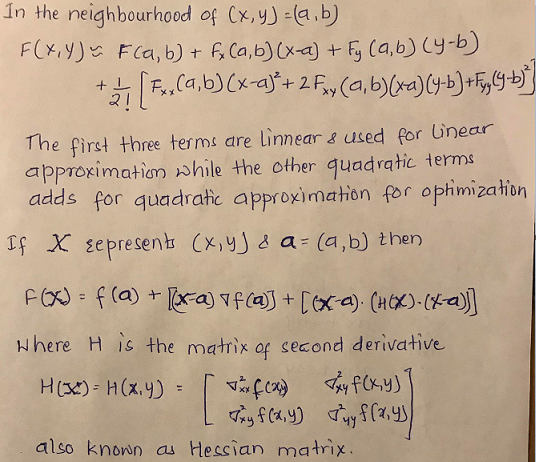 In the neighbourhood of (x,y) = (a,b)
F(x,y) ≈ F(a,b) + fx(a,b)(x-a) + Fy(a,b)(y-b)
+ 1/2! [Fxx(a,b)(x-a)² + 2Fxy(a,b)(x-a)(y-b) + Fyy(y-b)²]
The first three terms are linnear & used for linear
approximation while the other quadratic terms
adds for quadratic approximation for optimization
If X represents (x,y) & a = (a,b) then
F(X) = f(a) + [(x-a) ∇f(a)] + [(x-a). (H(X).(x-a))]
Where H is the matrix of second derivative
H(X) = H(x,y) = [ ∇²xx f(x,y) ∇²xy f(x,y) ]
[ ∇²xy f(x,y) ∇²yy f(x,y) ]
also known as Hessian matrix.